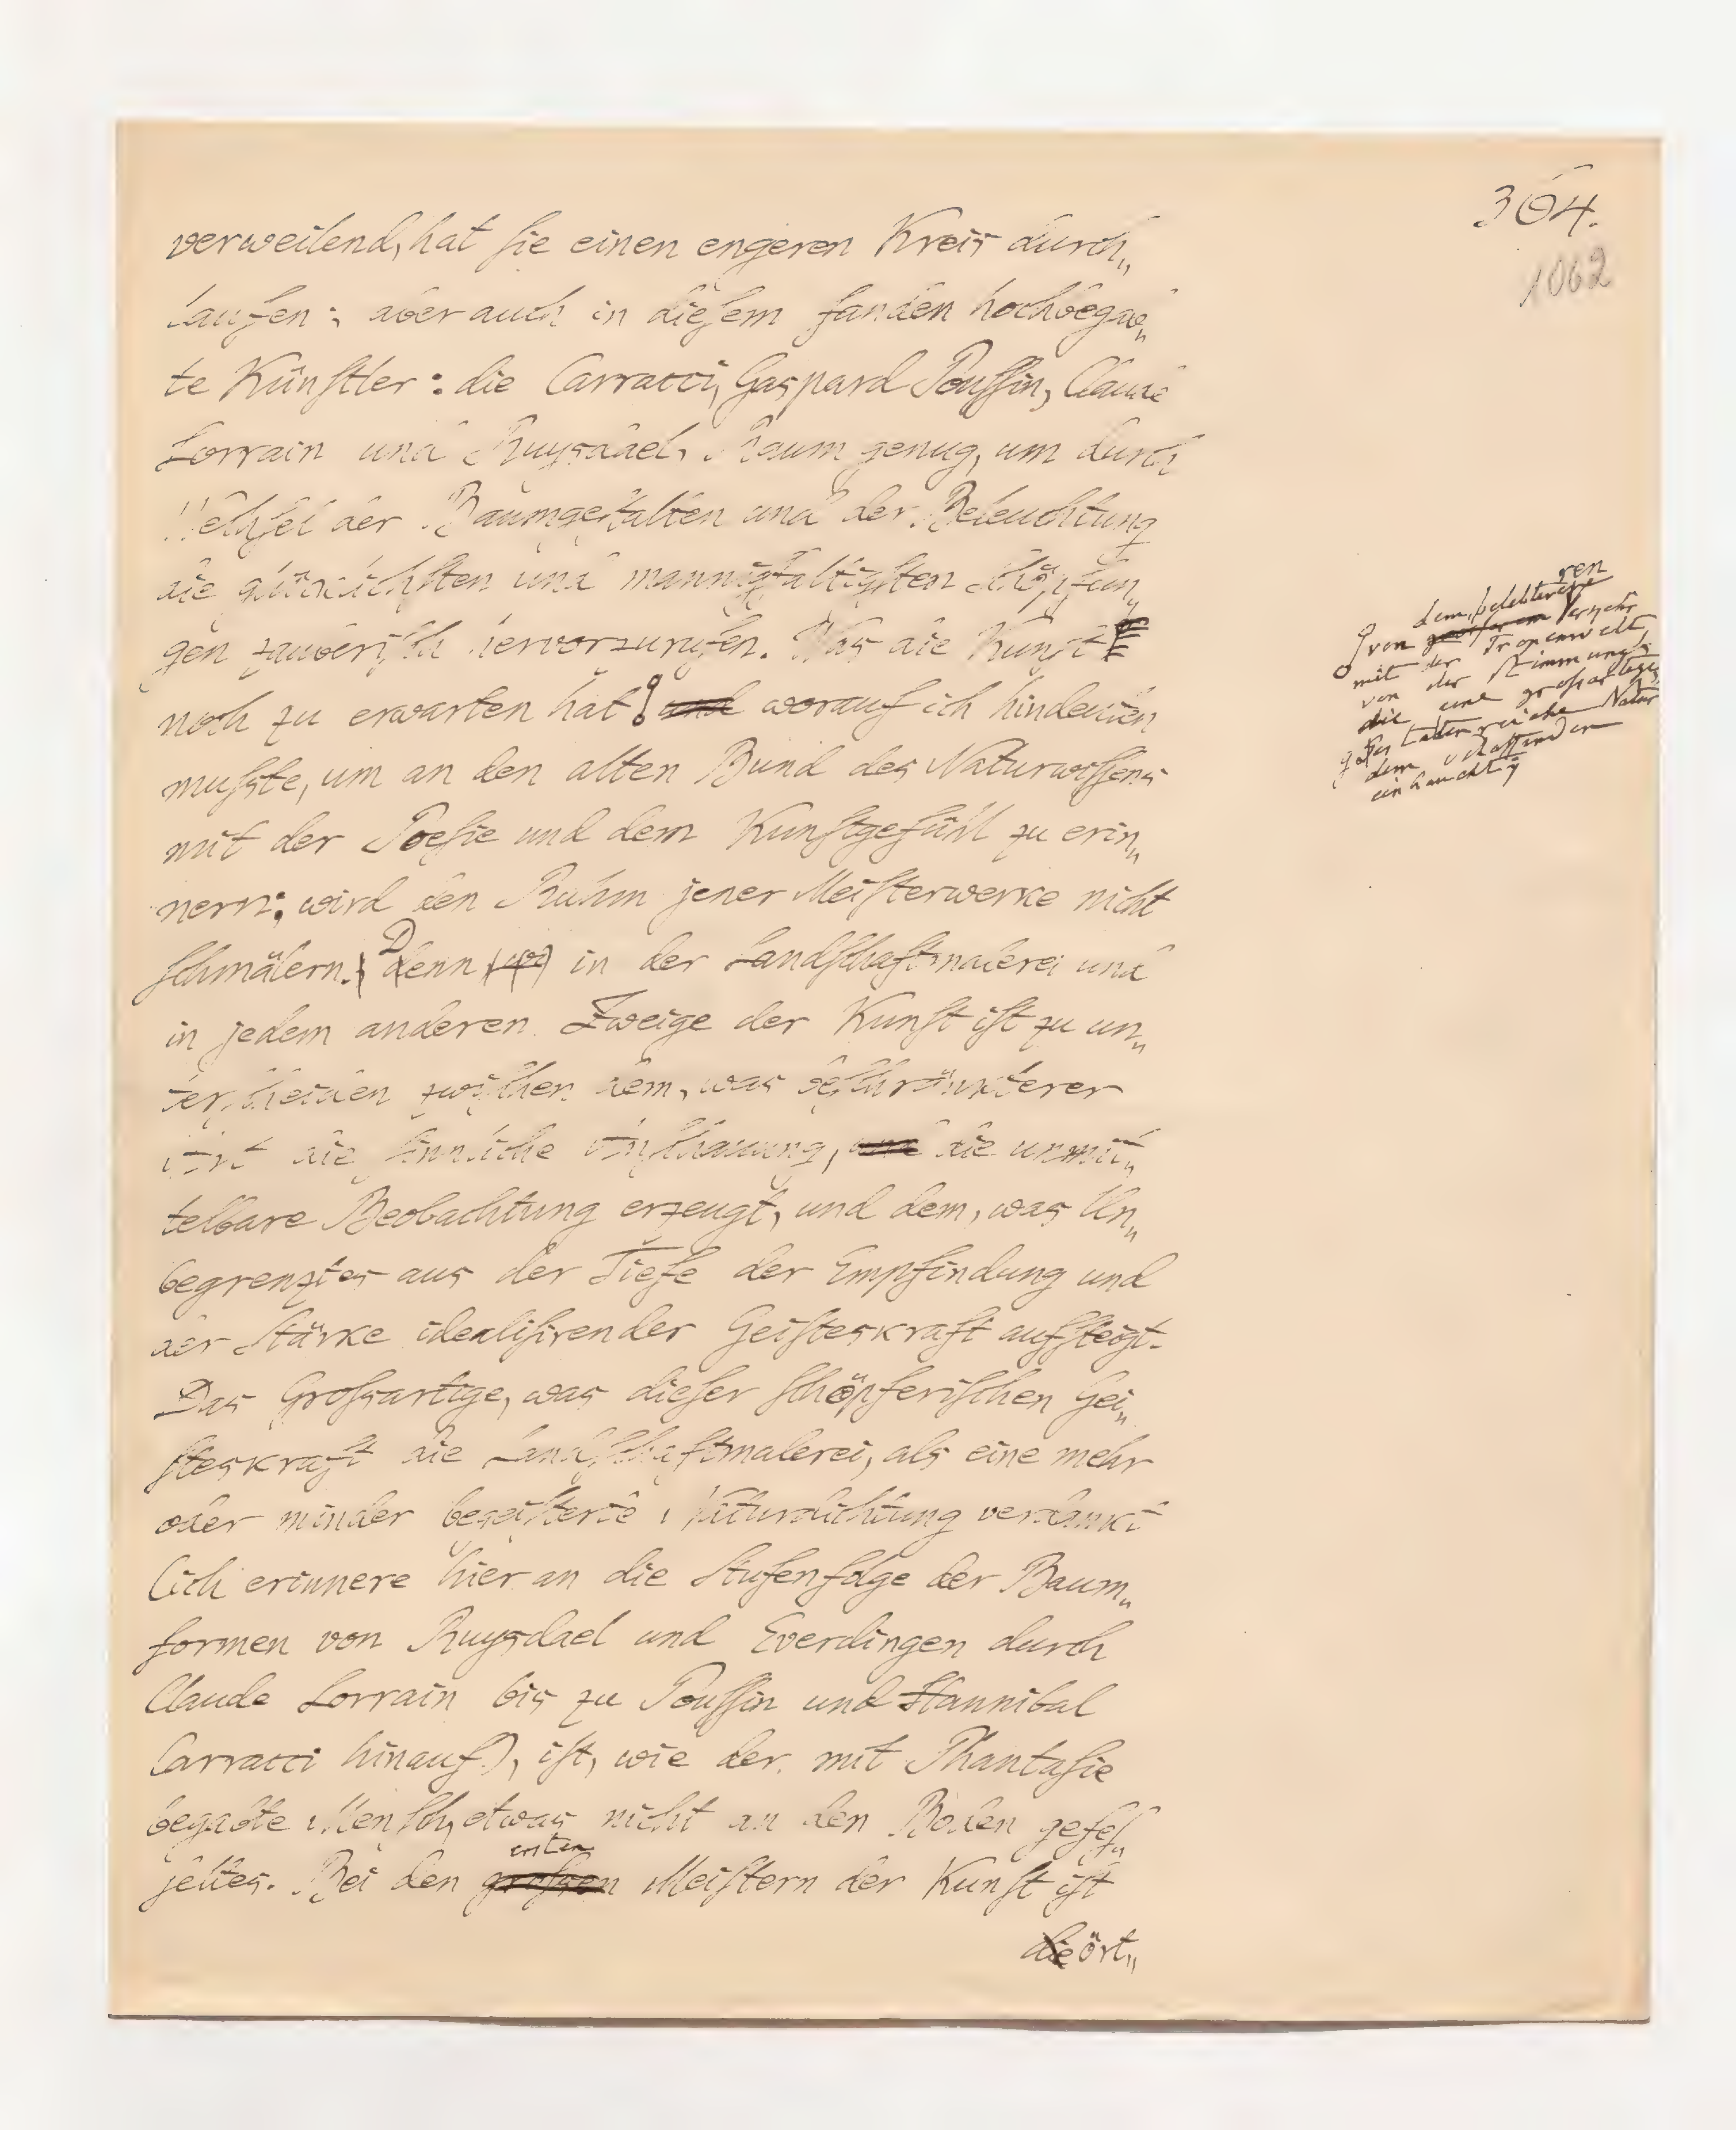 364.
1062
verweilend, hat sie einen engeren Kreis durch„
laufen; aber auch in diesem fanden hochbegab„
te Künstler: die Carracci, Gaspard Poussin, Claude
Lorrain und Ruysdael, Raum genug, um durch
Wechsel der Baumgestalten und der Beleuchtung
die glücklichsten und mannigfaltigsten Schöpfun„
gen zauberisch hervorzurufen. Was die Kunst
noch zu erwarten hat und worauf ich hindeuten
mußte, um an den alten Bund des Naturwissens
mit der Poesie und dem Kunstgefühl zu erin„
nern; wird den Ruhm jener Meisterwerke nicht
schmälern. Denn in der Landschaftmalerei und
in jedem anderen Zweige der Kunst ist zu un„
terscheiden zwischen dem, was beschränkterer
Art die sinnliche Anschauung, und die unmit„
telbare Beobachtung erzeugt, und dem, was Un„
begrenztes aus der Tiefe der Empfindung und
der Stärke idealisirender Geisteskraft aufsteigt.
Das Großartige, was dieser schöpferischen Gei„
steskraft die Landschaftmalerei, als eine mehr
oder minder begeisterte Naturdichtung verdankt
(ich erinnere hier an die Stufenfolge der Baum„
formen von Ruysdael und Everdingen durch
Claude Lorrain bis zu Poussin und Hannibal
Carracci hinauf), ist, wie der mit Phantasie
begabte Mensch, etwas nicht an den Boden gefes„
seltes. Bei den großen ersten Meistern der Kunst ist
die ört„
von dem belebteren Verkehr
mit der Tropenwelt
von der Stimmung
die eine großartige
gestaltenreiche Natur
dem Schaffenden
einhaucht